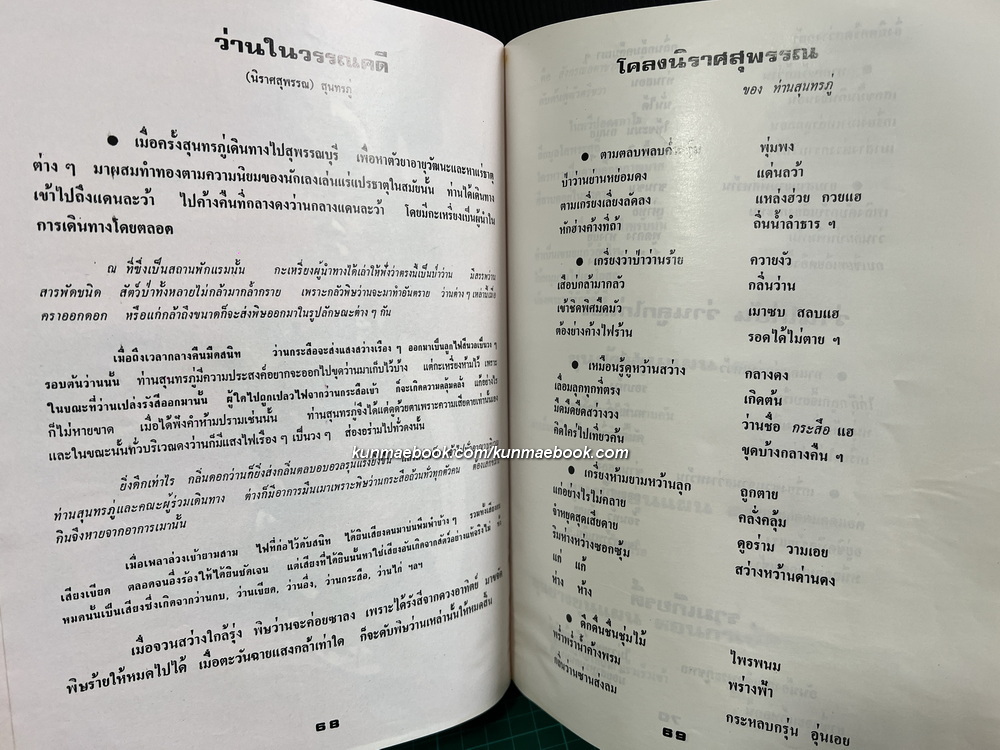 ว่านในวรรณคดี
(นิราศสุพรรณ) สุนทรภู่
● เมื่อครั้งสุนทรภู่เดินทางไปสุพรรณบุรี เพื่อหาตัวยาอายุวัฒนะและหาแร่ธาตุ
ต่าง ๆ มาผสมทำทองตามความนิยมของนักเลงเล่นแร่แปรธาตุในสมัยนั้น ท่านได้เดินทาง
เข้าไปถึงแดนละว้า ไปค้างคืนที่กลางดงว่านกลางแดนละว้า โดยมีกะเหรี่ยงเป็นผู้นำใน
การเดินทางโดยตลอด
ณ ที่ซึ่งเป็นสถานพักแรมนั้น กะเหรี่ยงผู้นำทางได้เล่าให้ฟังว่าตรงนี้เป็นป่าว่าน มีสรรพว่าน
สารพัดชนิด สัตว์ป่าทั้งหลายไม่กล้ามากล้ำกราย เพราะกลัวพิษว่านจะมาทำอันตราย ว่านต่าง ๆ เหล่านี้เมื่อ
คราวออกดอก หรือแก่กล้าถึงขนาดก็จะส่งพิษออกมาในรูปลักษณะต่าง ๆ กัน
เมื่อถึงเวลากลางคืนมืดสนิท ว่านกระสือจะส่งแสงสว่างเรือง ๆ ออกมาเป็นลูกไฟสีนวลเป็นวง ๆ
รอบต้นว่านนั้น ท่านสุนทรภู่มีความประสงค์อยากจะออกไปขุดว่านมาเก็บไว้บ้าง แต่กะเหรี่ยงห้ามไว้ เพราะ
ในขณะที่ว่านเปล่งรังสีออกมานั้น ผู้ใดไปถูกเปลวไฟจากว่านกระสือเข้า ก็จะเกิดความคลุ้มคลั่ง แก้อย่างไร
ก็ไม่หายขาด เมื่อได้ฟังคำห้ามปรามเช่นนั้น ท่านสุนทรภู่จึงได้แต่ดูด้วยตาเพราะความเสียดายเท่านั้นเอง
และในขณะนั้นทั่วบริเวณดงว่านก็มีแสงไฟเรือง ๆ เป็นวง ๆ ส่องอร่ามไปทั่วดงนั้น
ยิ่งดึกเท่าไร กลิ่นดอกว่านก็ยิ่งส่งกลิ่นตลบอบอวลรุนแรงยิ่งขึ้น
ท่านสุนทรภู่และคณะผู้ร่วมเดินทาง ต่างก็มีอาการมึนเมาเพราะพิษว่านกระสือถ้วนทั่วทุกตัวคน
กินจึงหายจากอาการเมานั้น
เมื่อเพลาล่วงเข้ายามสาม ไฟที่ก่อไว้ดับสนิท ได้ยินเสียงคนมาบ่นพึมพำข้าง ๆ
เสียงเขียด ตลอดจนอึ่งร้องให้ได้ยินชัดเจน แต่เสียงที่ได้ยินนั้นหาใช่เสียงอันเกิดจากสัตว์อย่างแท้จริงไม่
หมดนั้นเป็นเสียงซึ่งเกิดจากว่านกบ, ว่านเขียด, ว่านอึ่ง, ว่านกระสือ, ว่านไก่ ฯลฯ
เมื่อจวนสว่างใกล้รุ่ง พิษว่านจะค่อยซาลง เพราะได้รังสีจากดวงอาทิตย์ มาขจัด
พิษร้ายให้หมดไปได้ เมื่อตะวันฉายแสงกล้าเท่าใด ก็จะดับพิษว่านเหล่านั้นให้หมดสิ้น
68
โคลงนิราศสุพรรณ
ของ ท่านสุนทรภู่
● ตามตลบพลบค่ำ พุ่มพง
ป่าว่านย่านหย่อมดง แดนลว้า
ตามเกรี่ยงเลี่ยงลัดลง แหล่งฮ่วย กวยแฮ
หักฮ่างค้างที่ถ้า ถิ่นน้ำลำธาร ๆ
● เกรี่ยงว่าป่าว่านร้าย ควายงัว
เสือบ่กล้ามากลัว กลิ่นว่าน
เข้าชิดพิศมืดมัว เมาซบ สลบแฮ
ต้องย่างค้างไฟร้าน รอดได้ไม่ตาย ๆ
● เหมือนรู้ดูหว้านสว่าง กลางดง
เลื่อมลูกทุกที่ตรง เกิดต้น
มืดมืดยืดสว่างวง ว่านชื่อ กระสือ แฮ
คิดใคร่ไปเที่ยวค้น ขุดบ้างกลางคืน ๆ
● เกรี่ยงห้ามยามหว้านลุก ถูกตาย
แก้อย่างไรไม่คลาย คลั่งคลุ้ม
จำหยุดสุดเสียดาย ดูอร่าม วามเอย
ริมห่างหว่างซอกซุ้ม สว่างหว้านด่านดง
แก่ แก้
ห่าง ห้าง
● ดึกดื่นชื่นชุ่มไม้ ไพรพนม
พร่ำพร่ำน้ำค้างพรม พร่างฟ้า
กลิ่นว่านซ่านส่งลม กระหลบกรุ่น อุ่นเอย
69
kunmaebook.com/kunmaebook.com